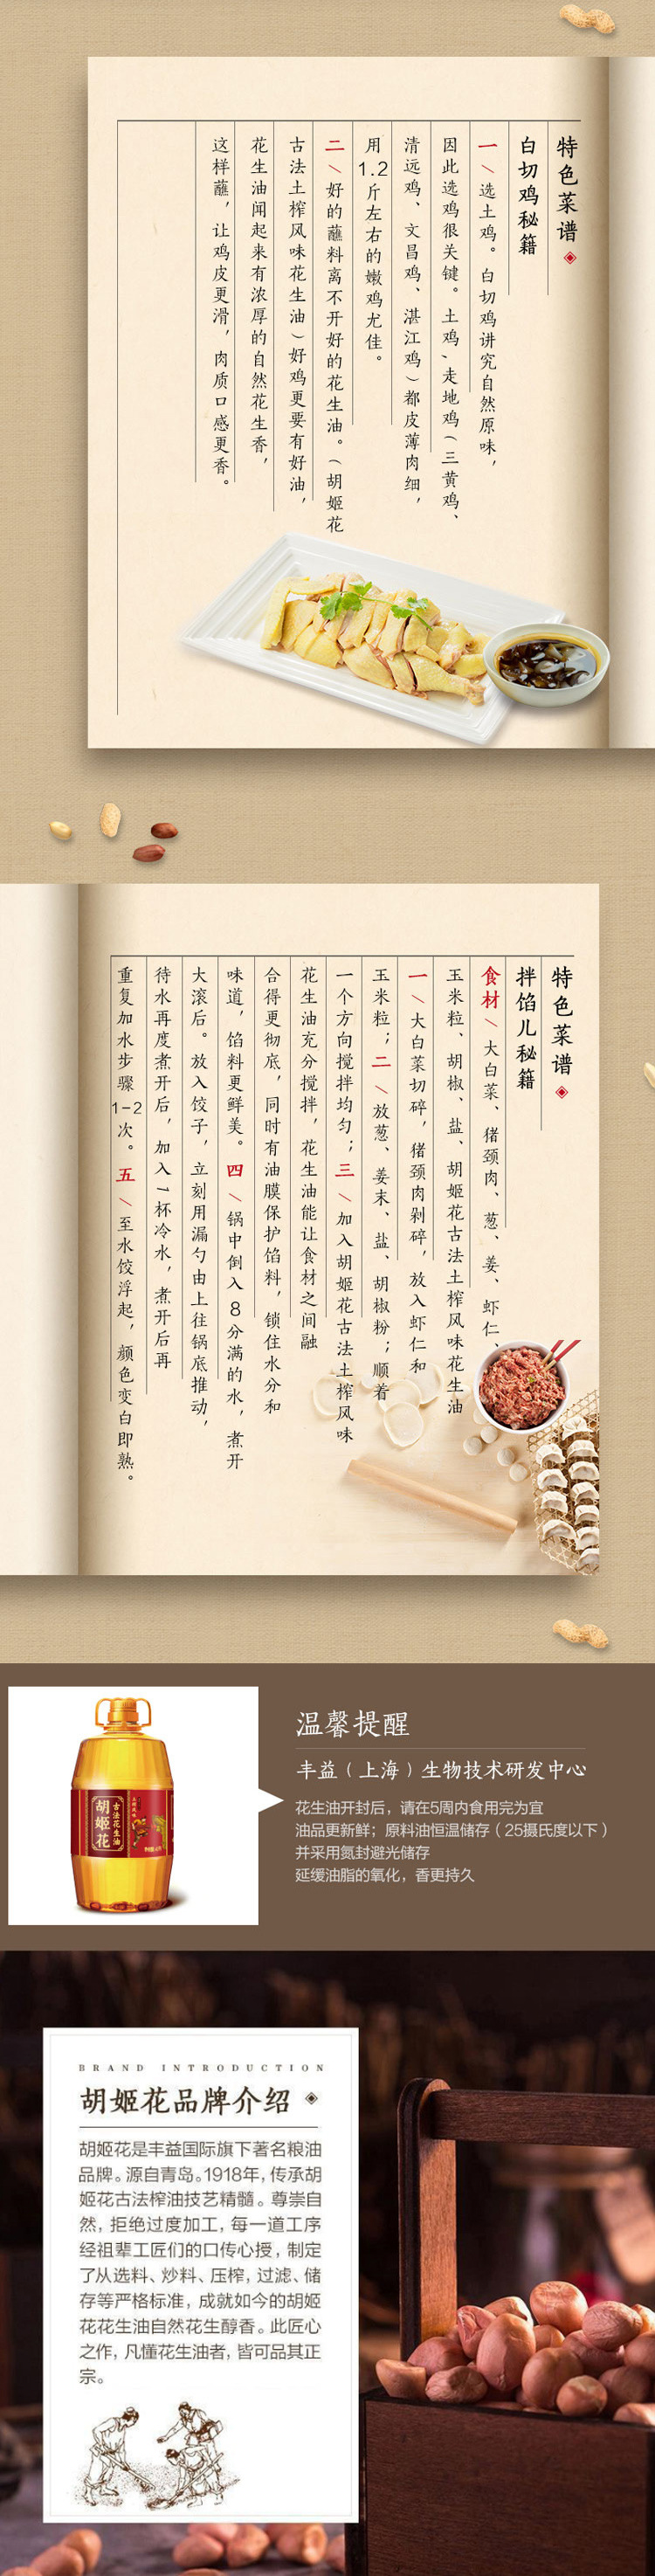 特色菜谱
白切鸡秘籍
一\选土鸡。白切鸡讲究自然原味，
因此选鸡很关键。土鸡、走地鸡（三黄鸡、
清远鸡、文昌鸡、湛江鸡）都皮薄肉细，
用1.2斤左右的嫩鸡尤佳。
二\好的蘸料离不开好的花生油。（胡姬花
古法土榨风味花生油）好鸡更要有好油，
花生油闻起来有浓厚的自然花生香，
这样蘸，让鸡皮更滑，肉质口感更香。
特色菜谱
拌馅儿秘籍
食材\大白菜、猪颈肉、葱、姜、虾仁、
玉米粒、胡椒、盐、胡姬花古法土榨风味花生油
一\大白菜切碎，猪颈肉剁碎，放入虾仁和
玉米粒；二\放葱、姜末、盐、胡椒粉；顺着
一个方向搅拌均匀；三\加入胡姬花古法土榨风味
花生油充分搅拌，花生油能让食材之间融
合得更彻底，同时有油膜保护馅料，锁住水分和
味道，馅料更鲜美。四\锅中倒入8分满的水，煮开
大滚后。放入饺子，立刻用漏勺由上往锅底推动，
待水再度煮开后，加入1杯冷水，煮开后再
重复加水步骤1-2次。五\至水饺浮起，颜色变白即熟。
胡姬花
古法花生油
温馨提醒
丰益（上海）生物技术研发中心
花生油开封后，请在5周内食用完为宜
油品更新鲜；原料油恒温储存（25摄氏度以下）
并采用氮封避光储存
延缓油脂的氧化，香更持久
BRAND INTRODUCTION
胡姬花品牌介绍
胡姬花是丰益国际旗下著名粮油
品牌。源自青岛。1918年，传承胡
姬花古法榨油技艺精髓。尊崇自
然，拒绝过度加工，每一道工序
经祖辈工匠们的口传心授，制定
了从选料、炒料、压榨，过滤、储
存等严格标准，成就如今的胡姬
花花生油自然花生醇香。此匠心
之作，凡懂花生油者，皆可品其正
宗。